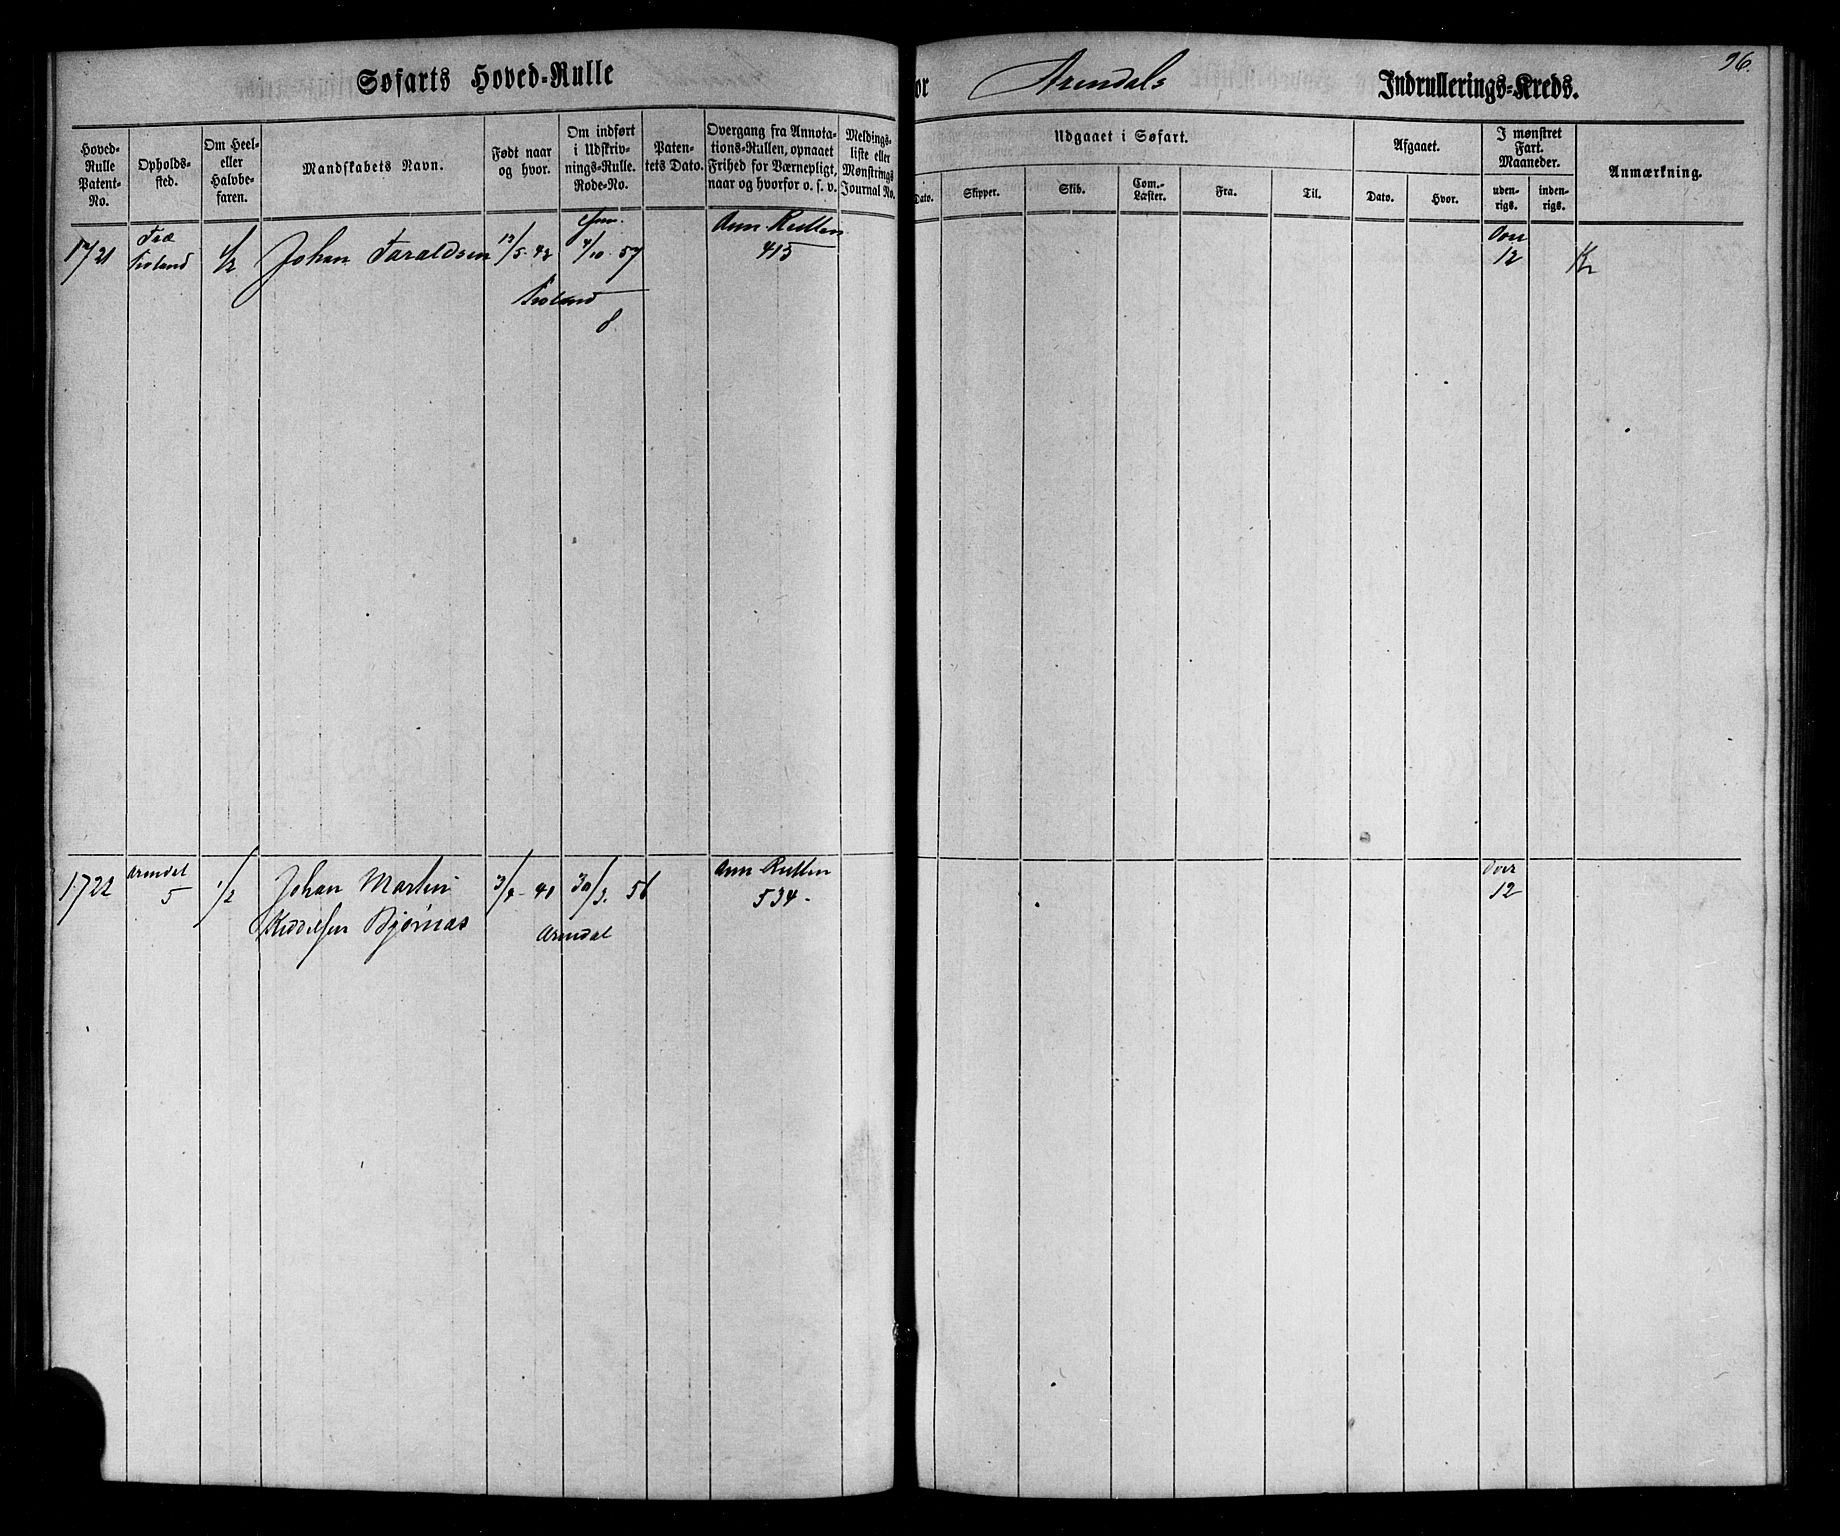 Søfarts Hoved-Rulle
for Arendals Indrullerings-Kreds.
96.
Hoved-Rulle Patent-No.
Opholds-sted.
Om Heel- eller Halvbe-faren.
Mandskabets Navn.
Født naar og hvor.
Om indført i Udskriv-nings-Rulle. Rode-No.
Paten-tets Dato.
Overgang fra Annota-tions-Rullen, opnaaet Frihed for Værnepligt, naar og hvorfor o. s. v.
Meldings-liste eller Mønstrings Journal No.
Udgaaet i Søfart.
Dato.
Skipper.
Skib.
Com.-Læster.
Fra.
Til.
Afgaaet.
Dato.
Hvor.
I mønstret Fart. Maaneder.
uden-rigs.
inden-rigs.
Anmærkning.
1721
Froland
1/2
Johan Taraldsen
12/5 42
4/10 57
Froland
8
Ann Rullen
415
Over
12
1722
Arendal
5
1/2
Johan Martin
Kiddelsen Bjørnaas
3/4 40
30/3 56
Arendal
Ann Rullen
534
Over
12